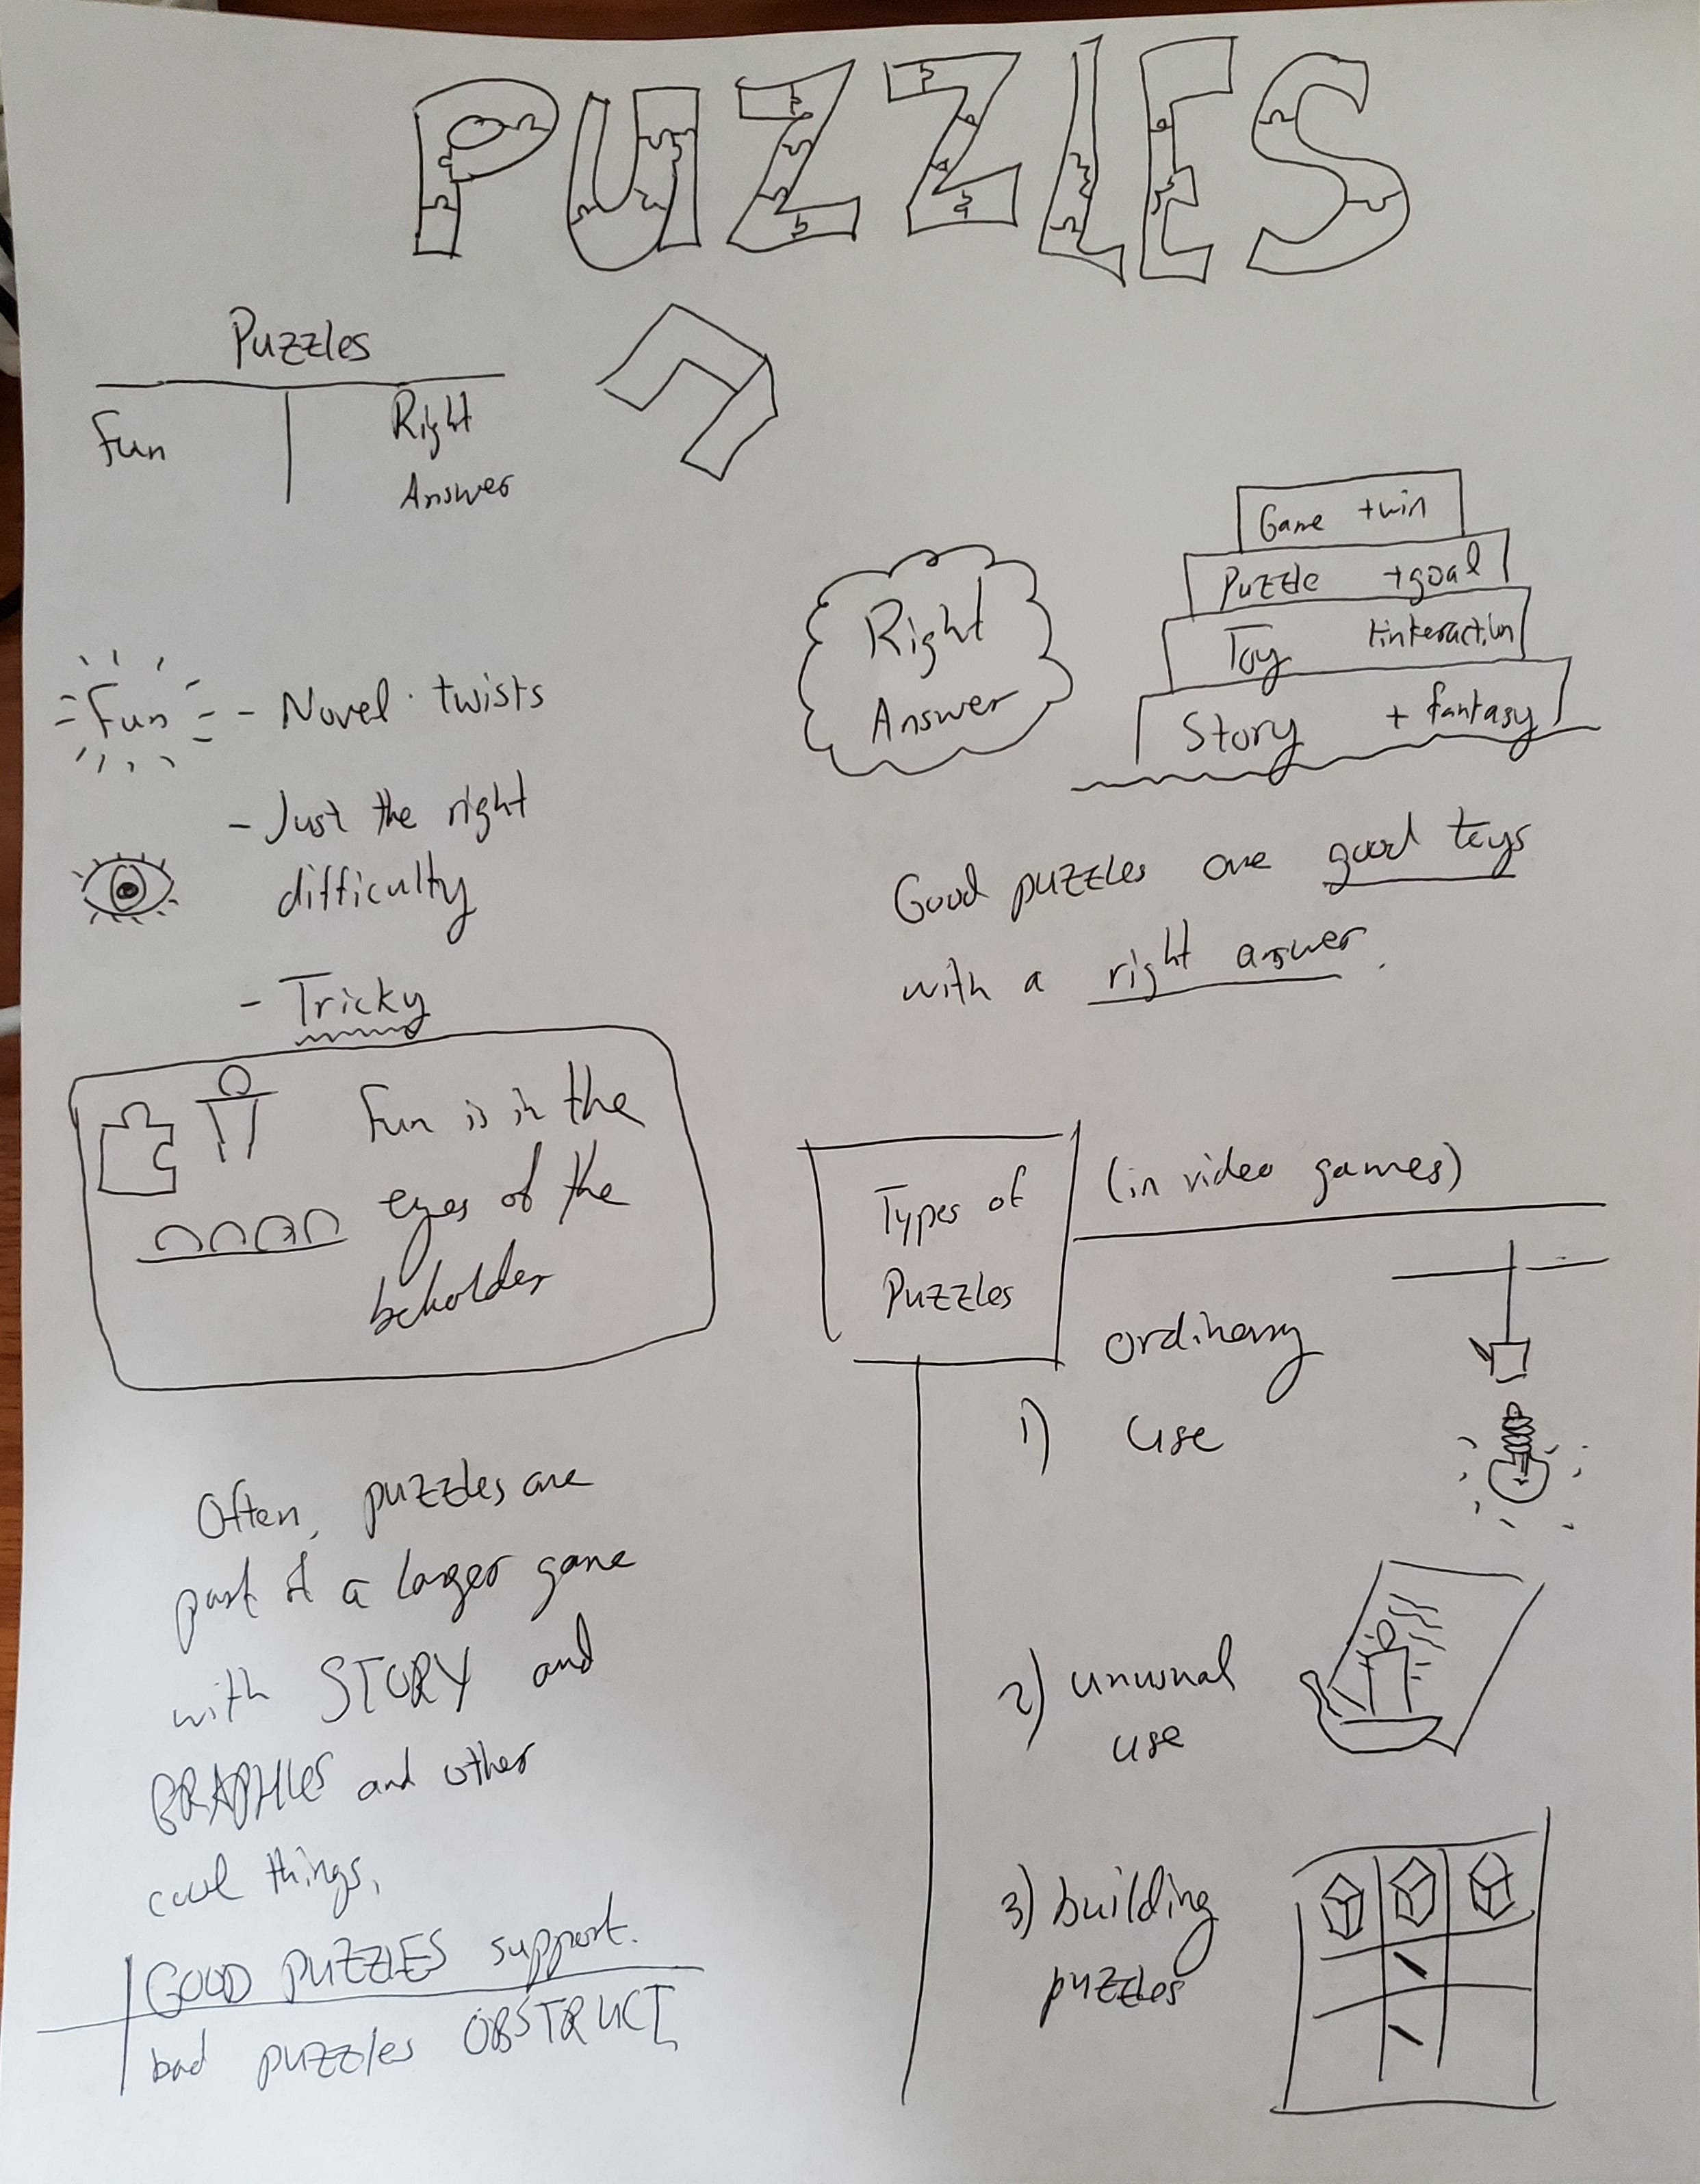 PUZZLES
Puzzles
Fun
Right
Answer
Fun
- Novel twists
- Just the right
difficulty
- Tricky
Fun is in the
eyes of the
beholder
Often, puzzles are
part of a larger game
with STORY and
GRAPHICS and other
cool things,
GOOD PUZZLES support.
bad puzzles OBSTRUCT
Right
Answer
Game +win
Puzzle +goal
Toy +interaction
Story + fantasy
Good puzzles are good toys
with a right answer.
Types of
Puzzles
(in video games)
ordinary
1) use
2) unusual
use
3) building
puzzles